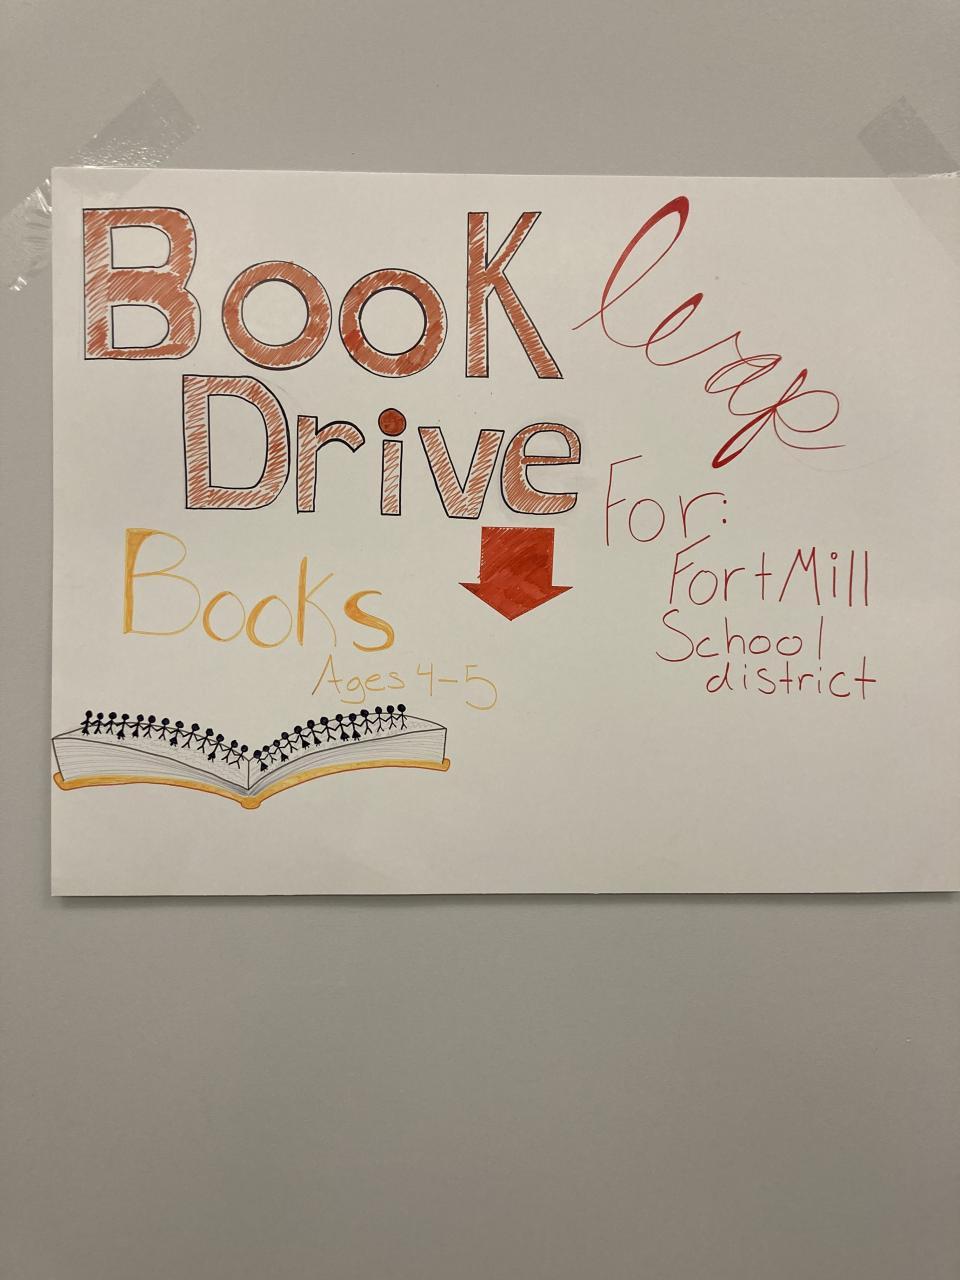 Book
Drive
leap
For:
Fort Mill
School
district
Books
Ages 4-5